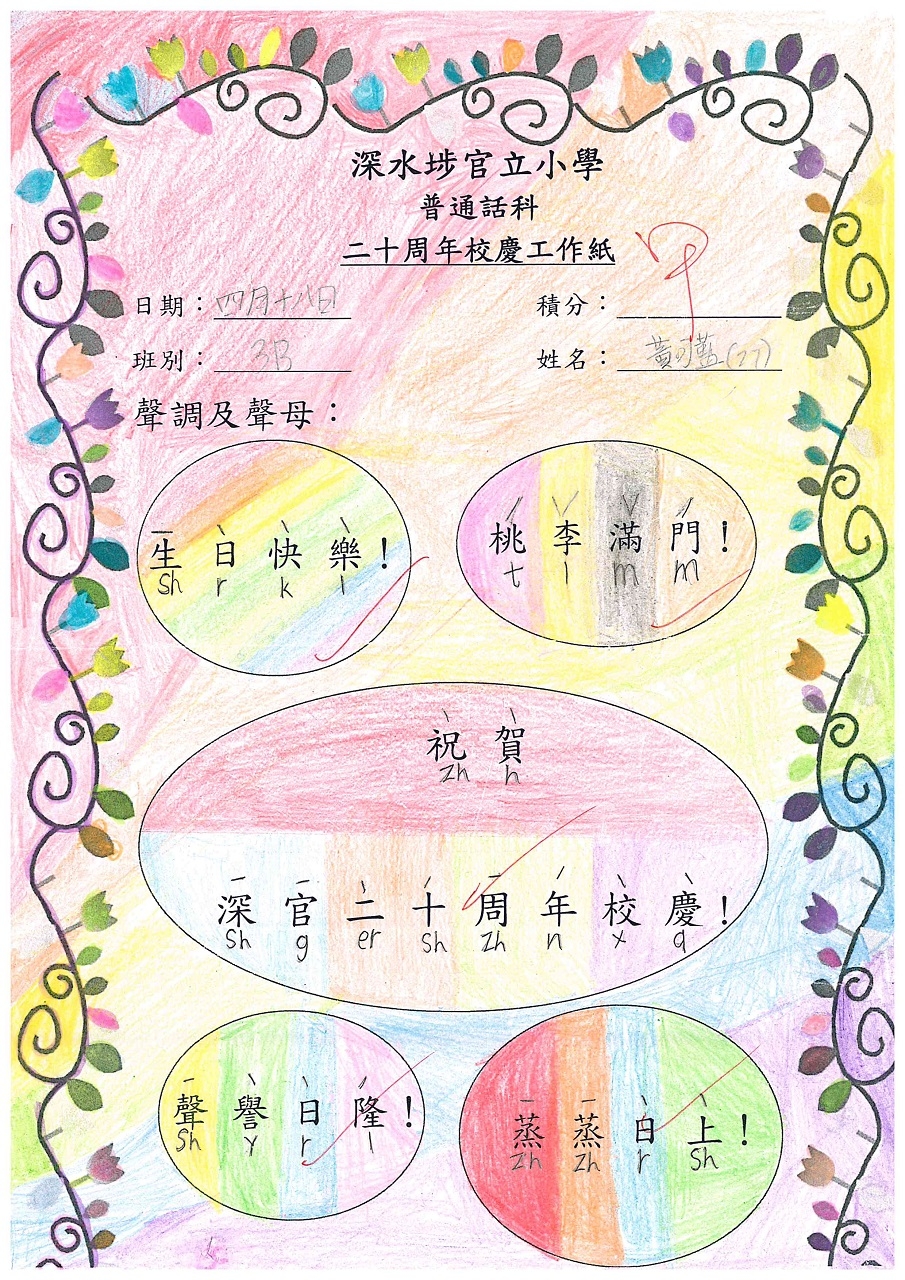 深水埗官立小學
普通話科
二十周年校慶工作紙
日期：四月十八日 積分：甲
班別：3B 姓名：黃可藍(27)
聲調及聲母：
生日快樂！
sh r k l
桃李滿門！
t l m m
祝賀
zh h
深官二十周年校慶！
sh g er sh zh n x q
聲譽日隆！
sh y r l
蒸蒸日上！
zh zh r sh